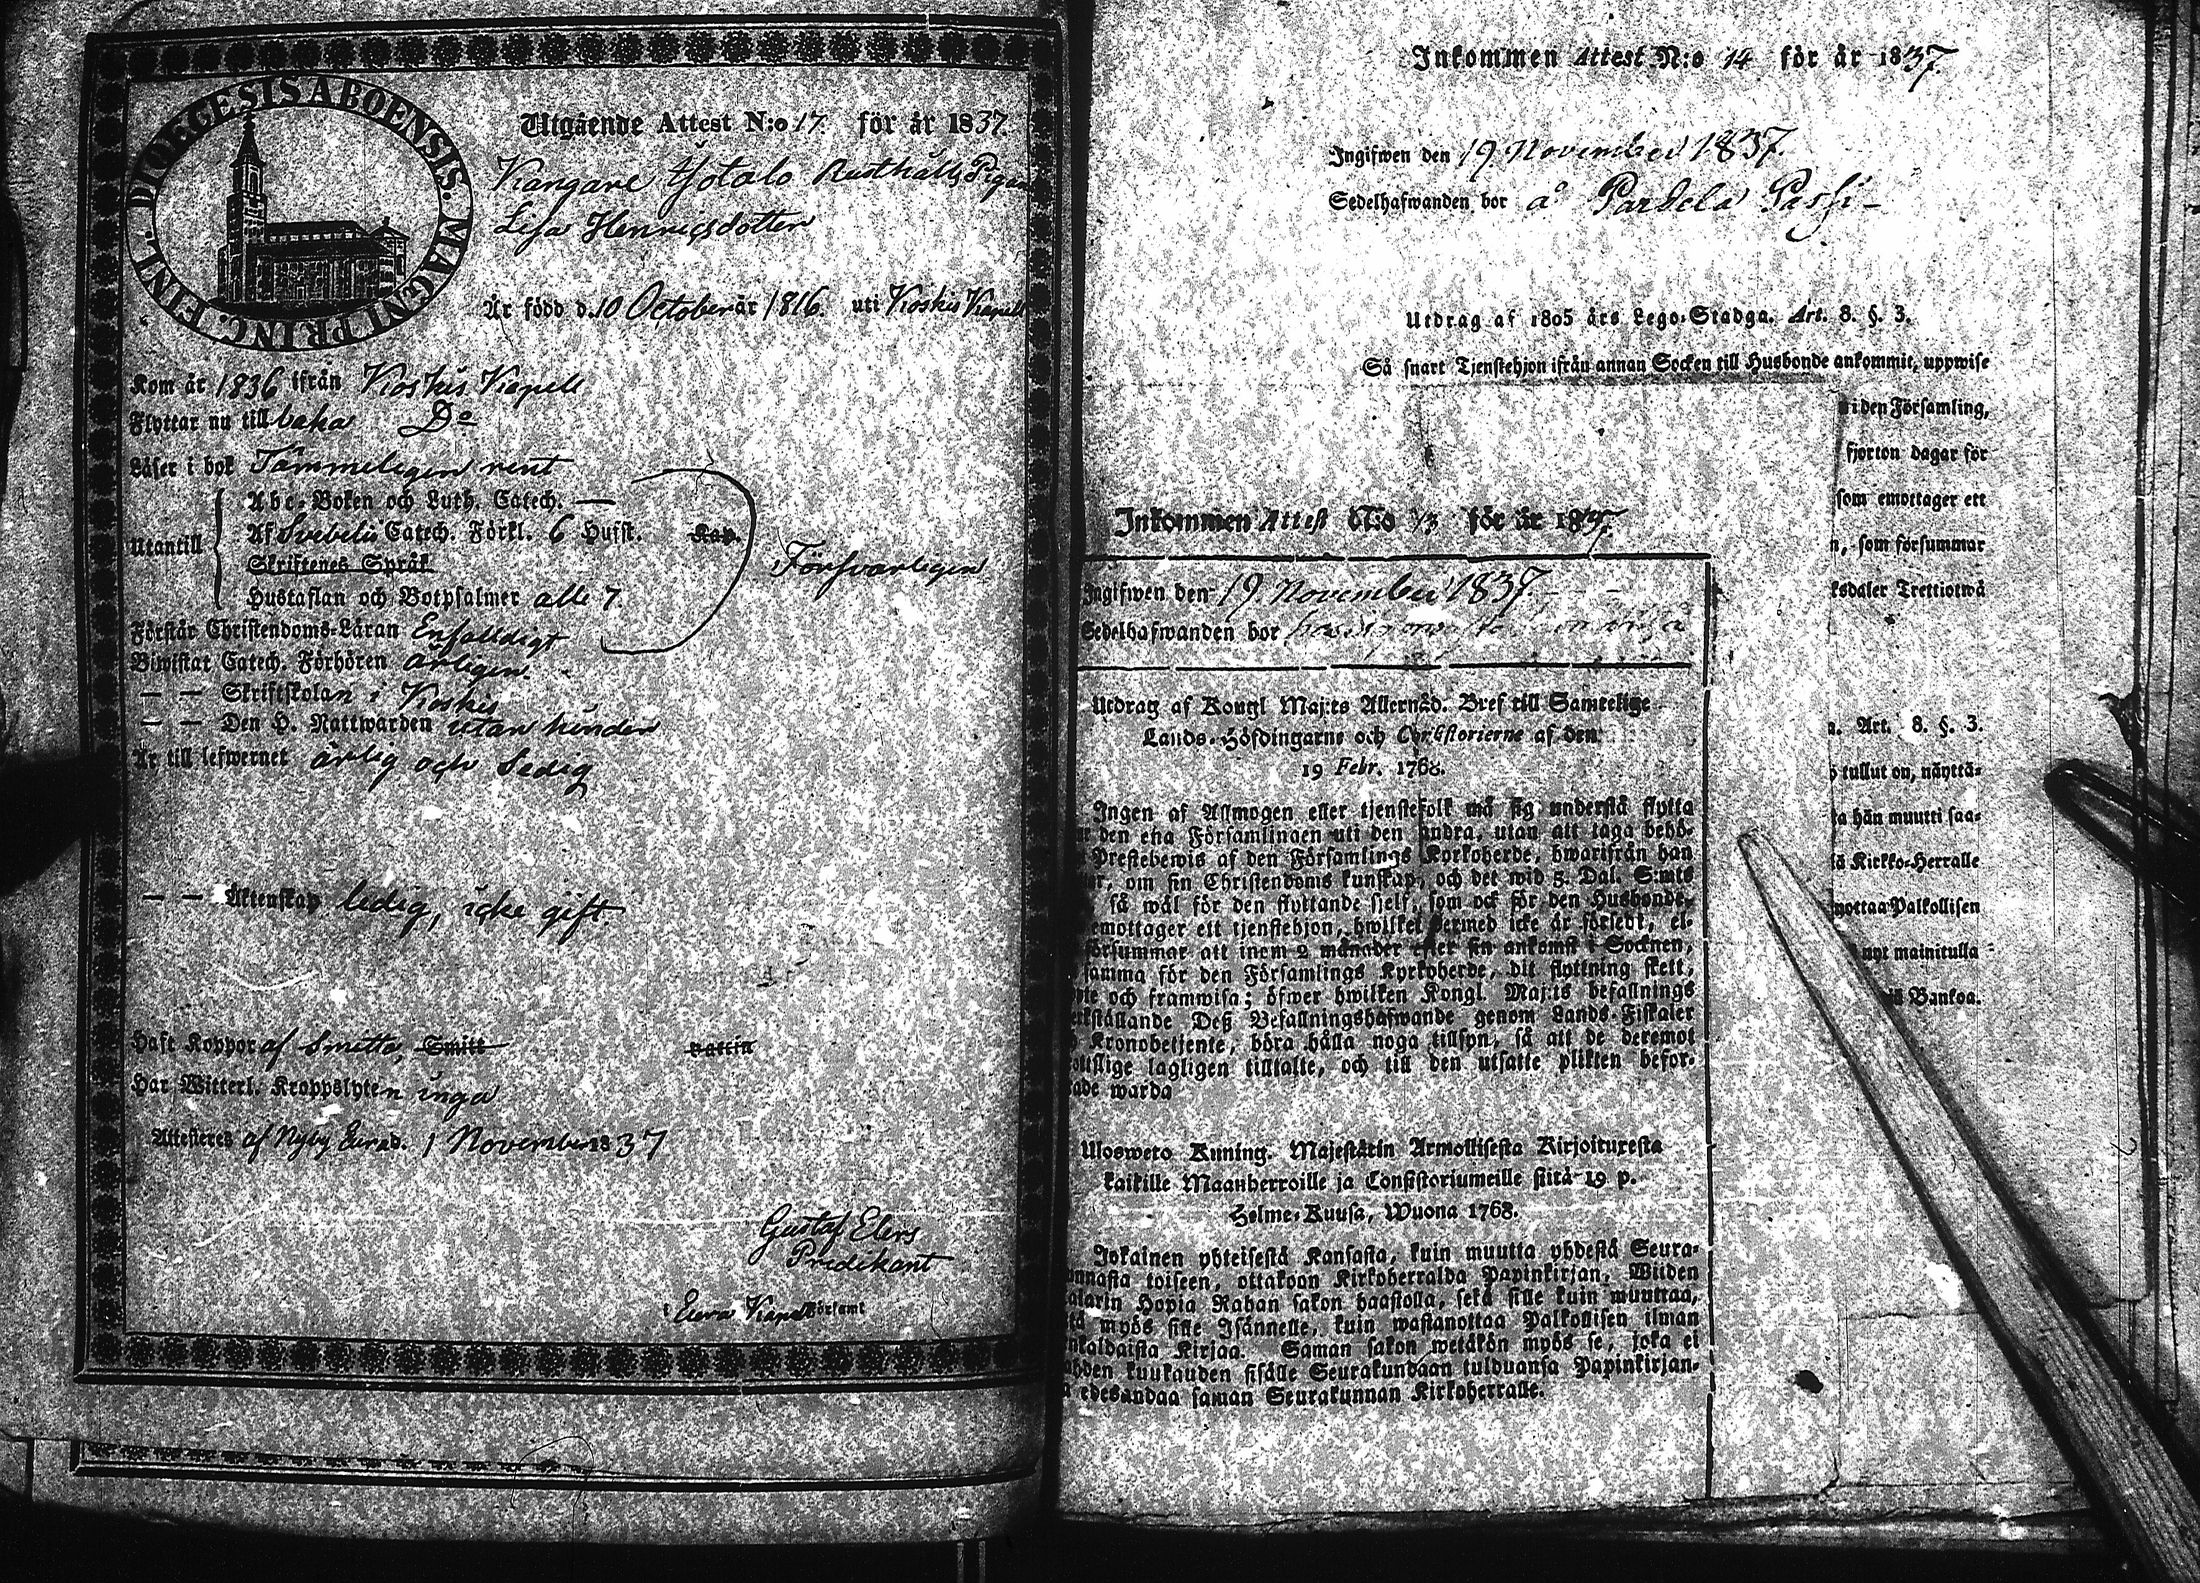 DIOECESIS ABOENSIS. MAGNI PRINC. FINL.
Utgående Attest N:o 17. för år 1837.
Kangare Yotalo Rusthålls Pigan
Lisa Henricsdotter
Är född d. 10 October år 1816. uti Koskis Kapell
Kom år 1836 ifrån Koskis Kapell
Flyttar nu tillbaka Do
Läser i bok Tämmeligen rent
Utantill
Abc-Boken och Luth. Catech. —
Af Svebelii Catech. Förkl. 6 Hufst. Kap.
Skriftenes Språk
Hustaflan och Botpsalmer alle 7.
Försvarligen
Förstår Christendoms-Läran Enfalldigt
Biwistat Catech. Förhören årligen.
— — Skriftskolan i Koskis
— — Den H. Nattwarden utan hinder
Är till lefwernet ärlig och Sedig
— — Äktenskap ledig, icke gift.
Haft Koppor af Smitta, Smitt Vaccin
Har Witterl. Kroppslyten inga
Attesteres af Nyby Eurad. 1 November 1837
Gustaf Elers
Predikant
i Eura Kapell Församl
Inkommen Attest N:o 14 för år 1837.
Ingifwen den 19 November 1837.
Sedelhafwanden bor å Pardela Passi
Utdrag af 1805 års Lego-Stadga. Art. 8. §. 3.
Så snart Tjenstehjon ifrån annan Socken till Husbonde ankommit, uppwise
i den Församling,
fjorton dagar för
som emottager ett
n, som försummar
ksdaler Trettiotwå
a. Art. 8. §. 3.
tullut on, näyttä-
ta hän muutti saa-
lä Kirkko-Herralle
nottaa Palkollisen
nyt mainitulla
iä Bankoa.
Inkommen Attest N:o 13 för år 1837.
Ingifwen den 19. November 1837.
Sedelhafwanden bor
Utdrag af Kongl Maj:ts Allernåd. Bref till Samtelige
Lands-Höfdingarne och Consistorierne af den
19 Febr. 1768.
Ingen af Allmogen eller tjenstefolk må sig understå flytta
den ena Församlingen uti den andra, utan att taga behö-
Prestebewis af den Församlings Kyrkoherde, hwarifrån han
r, om sin Christendoms kunskap, och det wid 5. Dal. S:mts
så wäl för den flyttande sjelf, som ock för den Husbonde,
emottager ett tjenstehjon, hwilket dermed icke är försedt, el-
försummar att inom 2 månader efter sin ankomst i Socknen,
samma för den Församlings Kyrkoherde, dit flyttning skett,
te och framwisa; öfwer hwilken Kongl. Maj:ts befallnings
rkställande Deß Befallningshafwande genom Lands-Fiskaler
Kronobetjente, böra hålla noga tillsyn, så att de deremot
ottslige lagligen tilltalte, och till den utsatte plikten befor-
ade warda
Ulosweto Kuning. Majestätin Armollisesta Kirjoituxesta
kaikille Maanherroille ja Consistoriumeille siitä 19 p.
Helme-Kuusa, Wuona 1768.
Jokainen yhteisestä Kansasta, kuin muutta yhdestä Seura-
unnasta toiseen, ottakoon Kirkoherralda Papinkirjan, Wiiden
alarin Hopia Rahan sakon haastolla, sekä sille kuin muuttaa,
tä myös sille Isännelle, kuin wastanottaa Palkollisen ilman
nkaldaista Kirjaa. Saman sakon wetäkön myös se, joka ei
hden kuukauden sisälle Seurakundaan tulduansa Papinkirjan-
a edesandaa saman Seurakunnan Kirkoherralle.